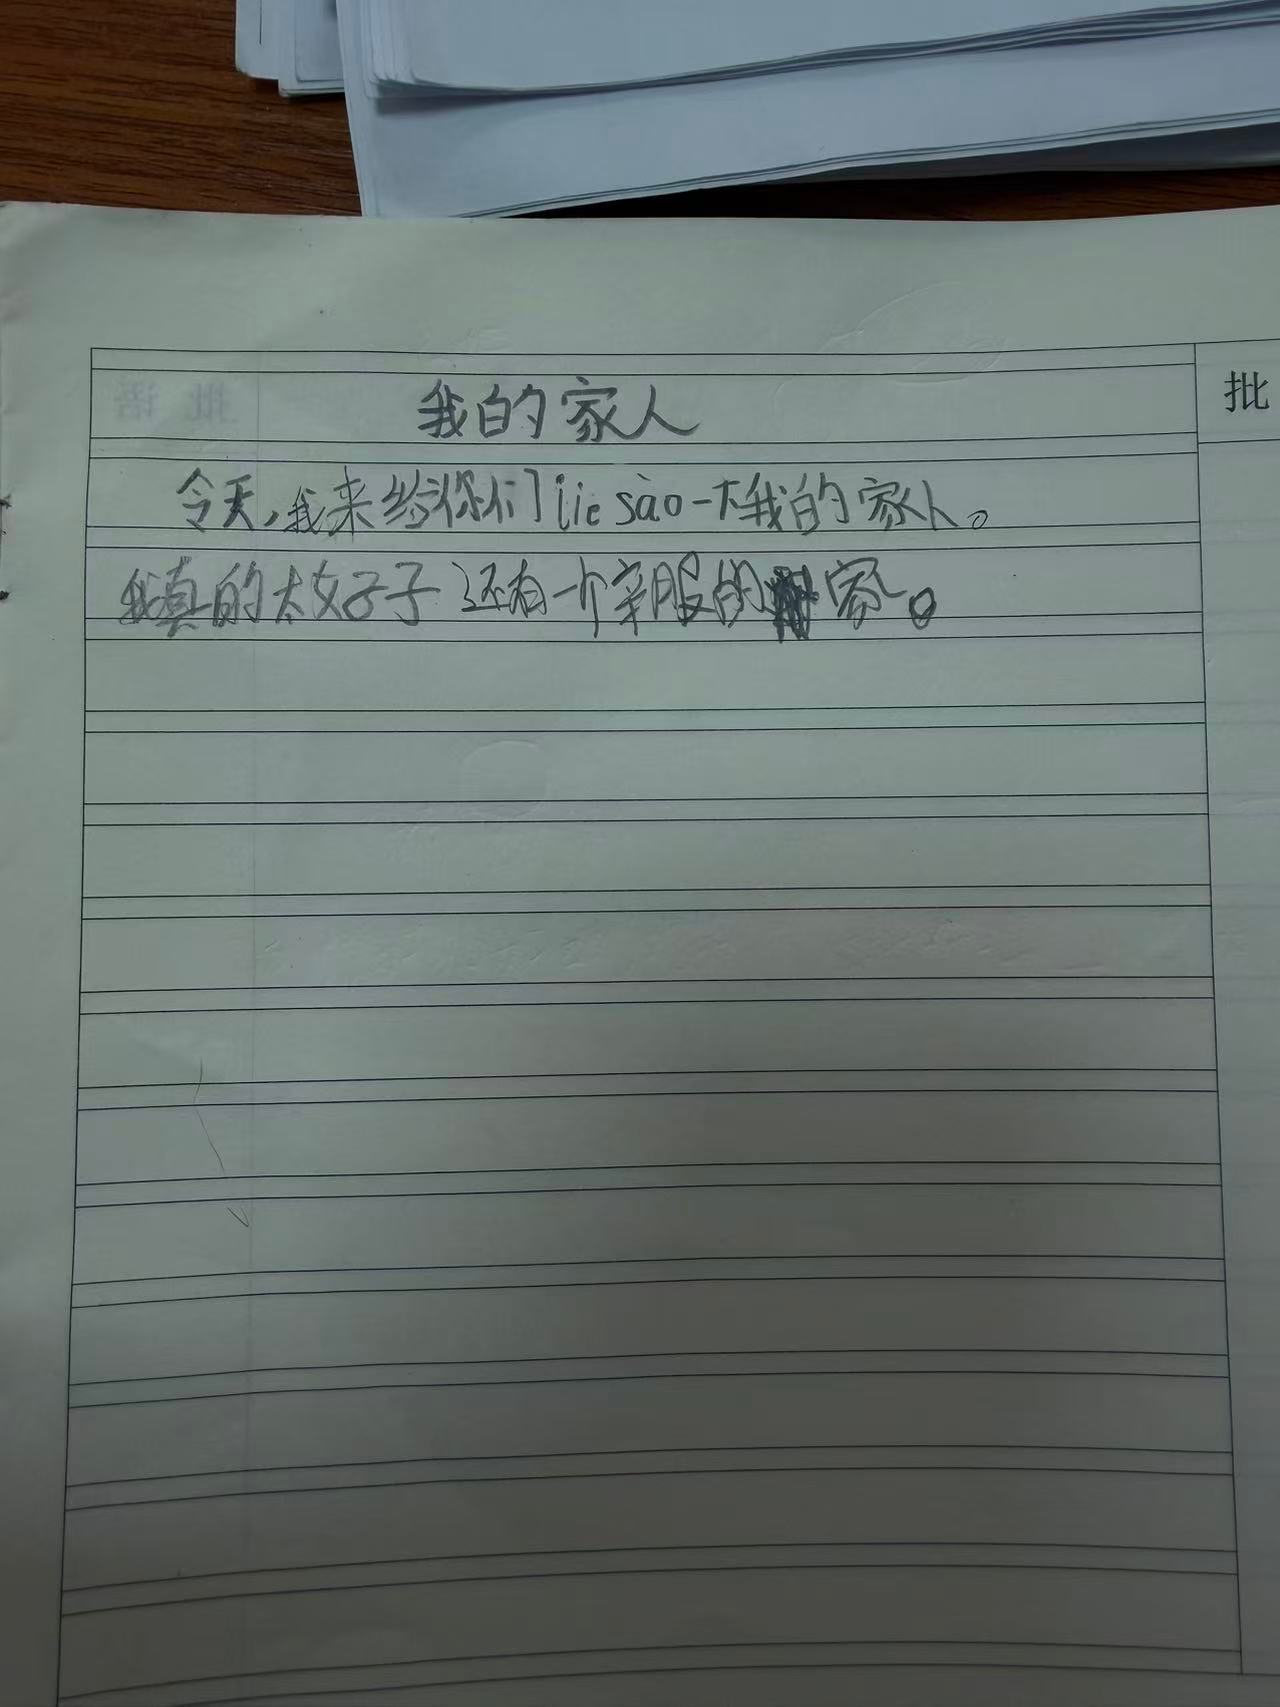 我的家人
批
今天,我来给你们 jie sào 一下我的家人。
我真的太好子 还有一个亲服的家。